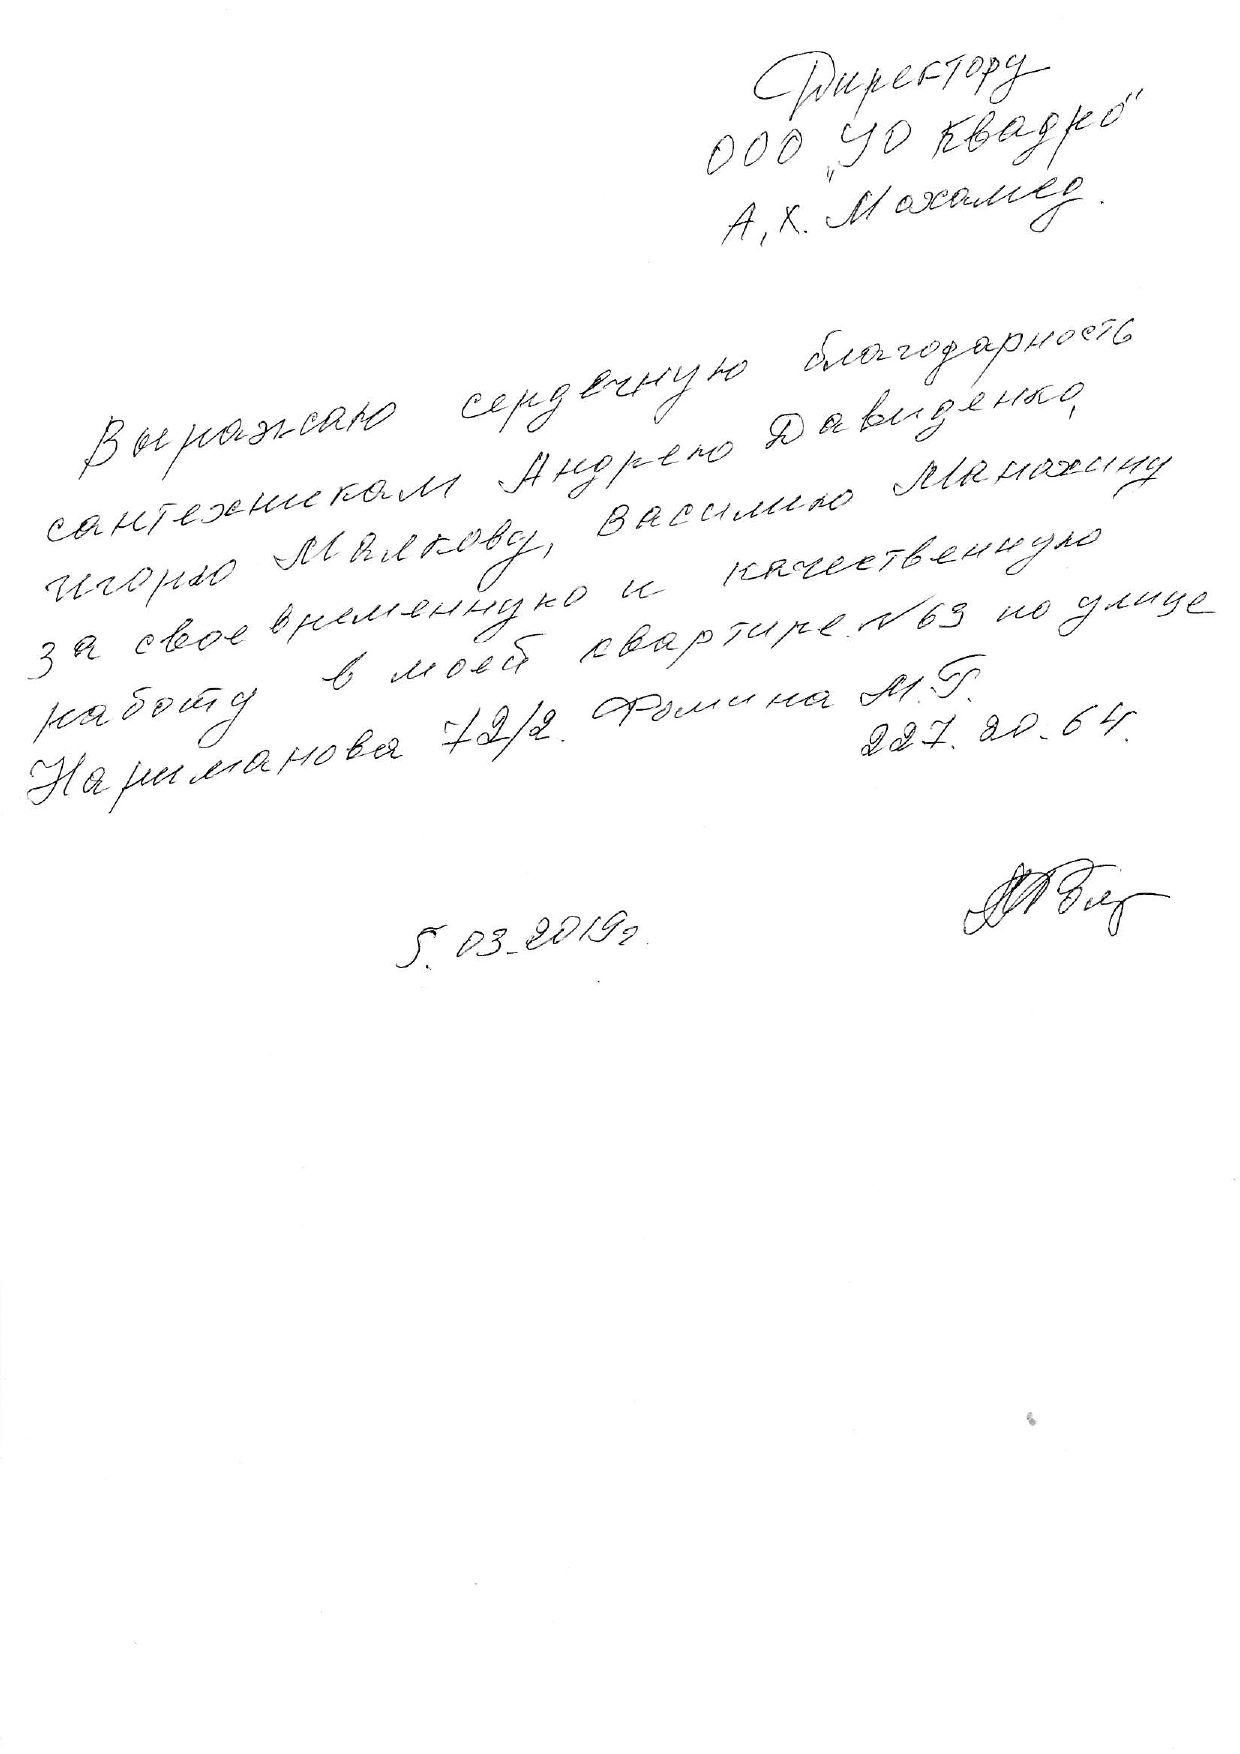 Директору
ООО "УО Квадро"
А.Х. Мохамед.
Выражаю сердечную благодарность
сантехникам Андрею Давиденко,
Игорю Малкову, Василию Манахину
за своевременную и качественную
работу в моей квартире №63 по улице
Нариманова 72/2. Фомина М.Г.
227.20.64.
5.03.2019г.